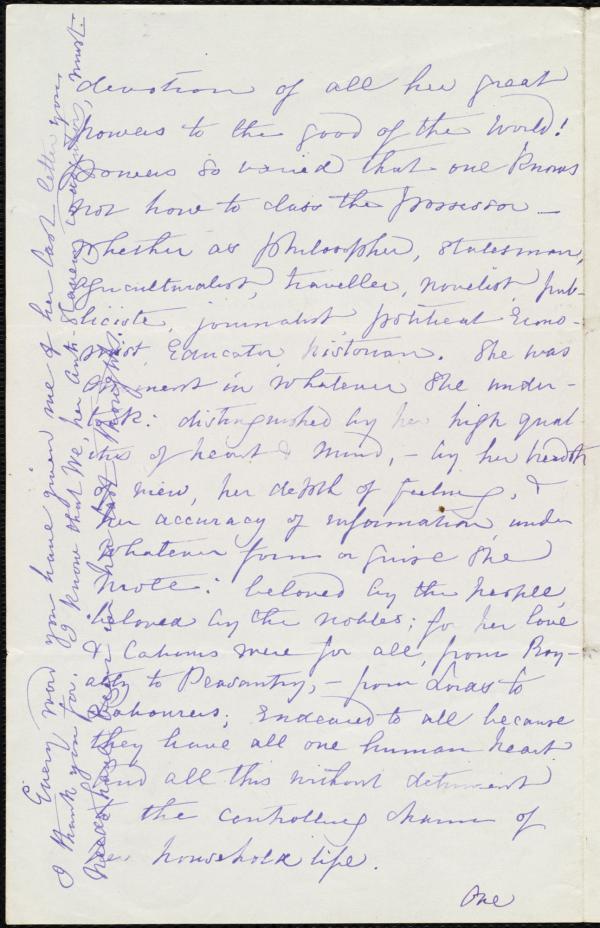 devotion of all her great
powers to the good of the world!
powers so varied that one knows
not how to class the possessor —
Whether as philosopher, statesman,
agriculturalist, traveller, novelist, pub-
liciste, journalist, political Econo-
mist, Educator, historian. She was
in whatever she under-
took: distinguished by her high qual
ities of heart & mind, – by her breadth
of view, her depth of feeling, &
her accuracy of information, under
whatever form or guise she
wrote: beloved by the people,
beloved by the nobles; for her love
& labours were for all, from Roy-
alty to Peasantry, – from Lords to
Labourers; Endeared to all because
they have all one human heart
And all this without detriment
to the controlling charm of
her household life.
One
Every word you have given me of her last letter you
I thank you for. I know that we, her anti-slavery coadjutors, must
have been in her last thoughts.